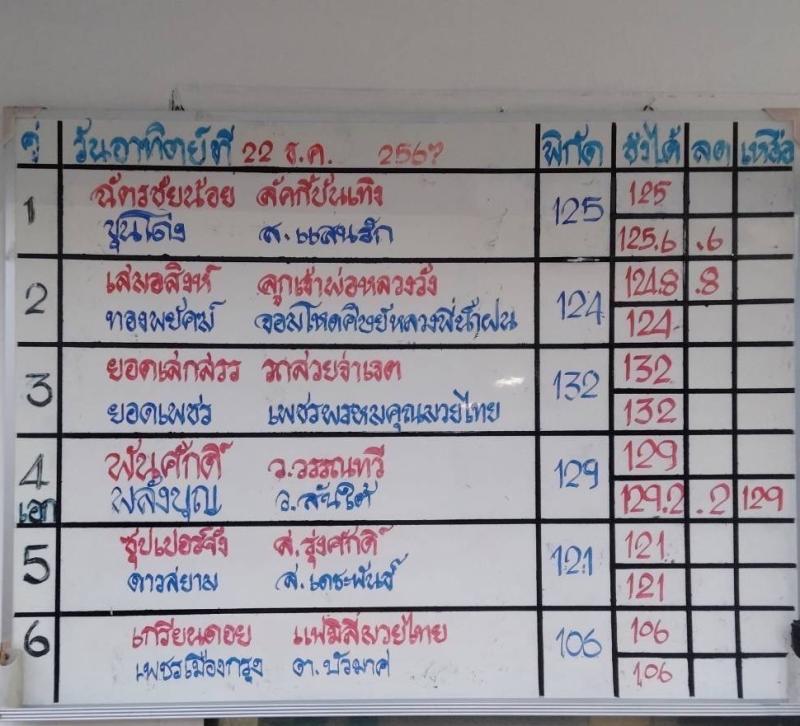 คู่ วันอาทิตย์ที่ 22 ธ.ค. 2567 พิกัด ชั่งได้ ลด เหลือ
1 ฉัตรชัยน้อย ลัคกี้บันเทิง 125 125
ขุนโต่ง ส.แสนรัก 125.6 .6
2 เสมอสิงห์ ลูกเจ้าพ่อหลวงวัง 124 124.8 .8
ทองพยัคฆ์ จอมโหดศิษย์หลวงพี่น้ำฝน 124
3 ยอดเล็กสรร รถสวยจ่าเจต 132 132
ยอดเพชร เพชรพรหมคุณมวยไทย 132
4 พันศักดิ์ ว.วรรณทวี 129 129
เอก พลังบุญ ว.สันใต้ 129.2 .2 129
5 ซุปเปอร์จิ๋ว ส.รุ่งศักดิ์ 121 121
ดาวสยาม ส.เดชะพันธ์ 121
6 เกรียนดอย แฟมิลี่มวยไทย 106 106
เพชรเมืองกรุง ต.บัวมาศ 106